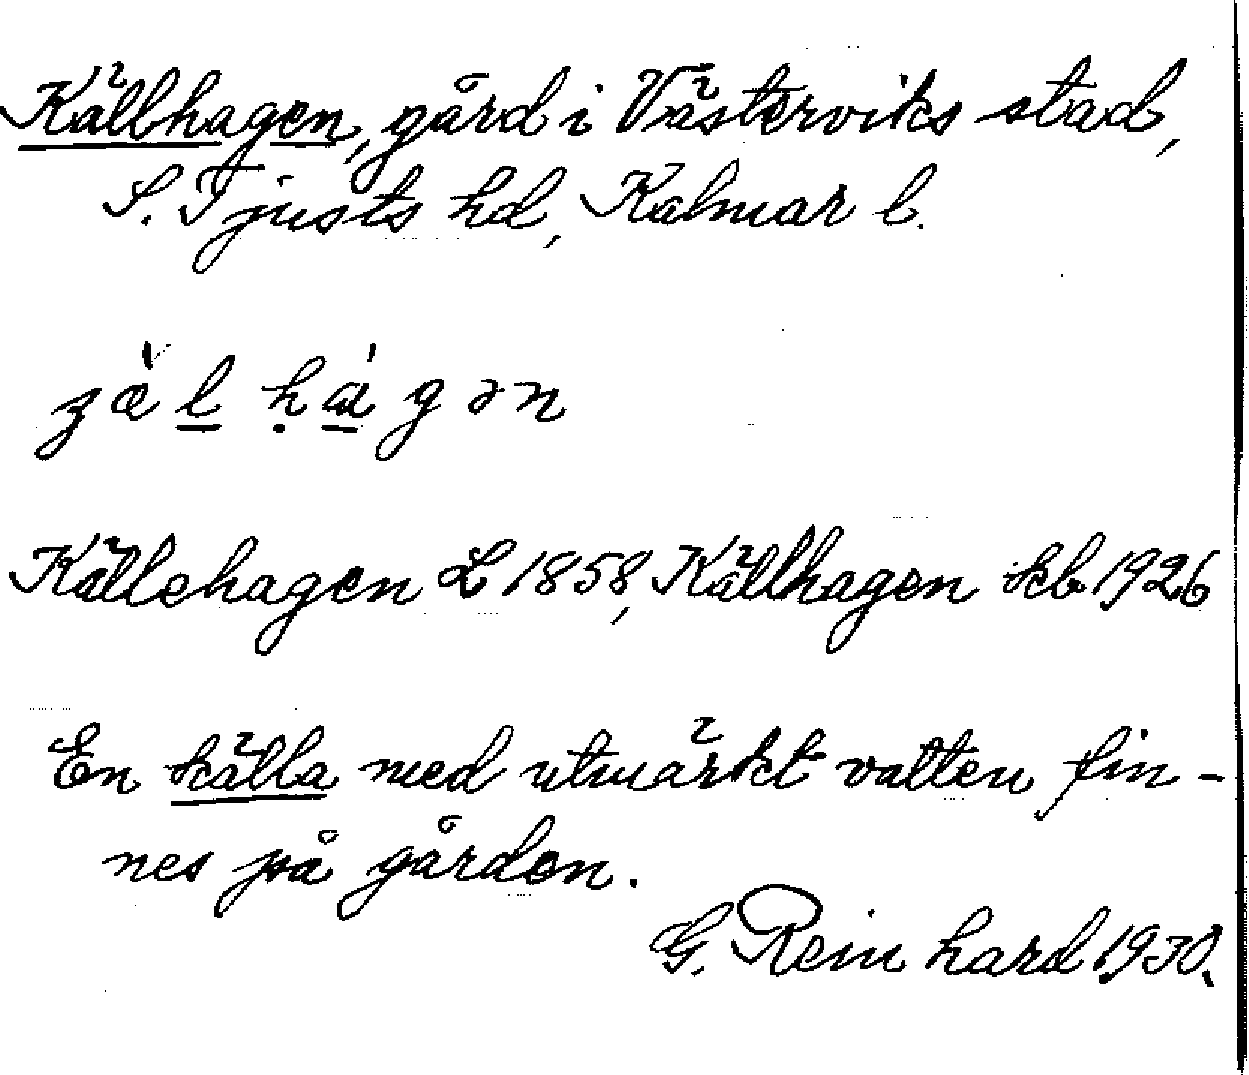 Källhagen, gård i Västerviks stad,
S. Tjusts hd, Kalmar l.
Källehagen L 1858, Källhagen kb 1926
En källa med utmärkt vatten fin-
nes på gården.
G. Reinhard 1930.